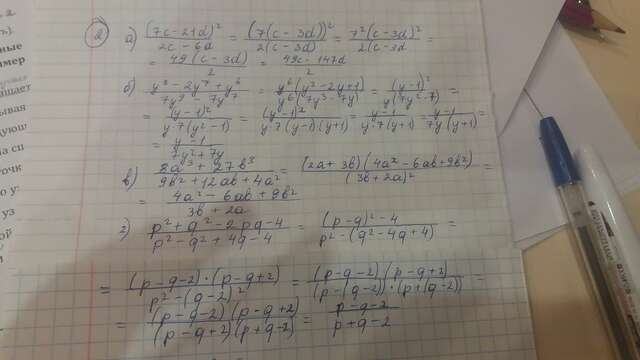 ② а) (7c-21d)²/2c-6d = (7(c-3d))²/2(c-3d) = 7²(c-3d)²/2(c-3d =
= 49(c-3d)/2 = 49c-147d/2
б) y⁸-2y⁷+y⁶/7y⁹-7y⁷ = y⁶(y²-2y+1)/y⁶(7y³-7y) = (y-1)²/y(7y²-7) =
= (y-1)²/y·7(y²-1) = (y-1)²/y·7(y-1)·(y+1) = y-1/y·7(y+1) = y-1/7y(y+1) =
= y-1/7y²+7y
в) 8a³+27b³/9b²+12ab+4a² = (2a+3b)(4a²-6ab+9b²)/(3b+2a)² =
= 4a²-6ab+9b²/3b+2a
г) p²+q²-2pq-4/p²-q²+4q-4 = (p-q)²-4/p²-(q²-4q+4) =
= (p-q-2)·(p-q+2)/p²-(q-2)² = (p-q-2)(p-q+2)/(p-(q-2))·(p+(q-2)) =
= (p-q-2)(p-q+2)/(p-q+2)(p+q-2) = p-q-2/p+q-2